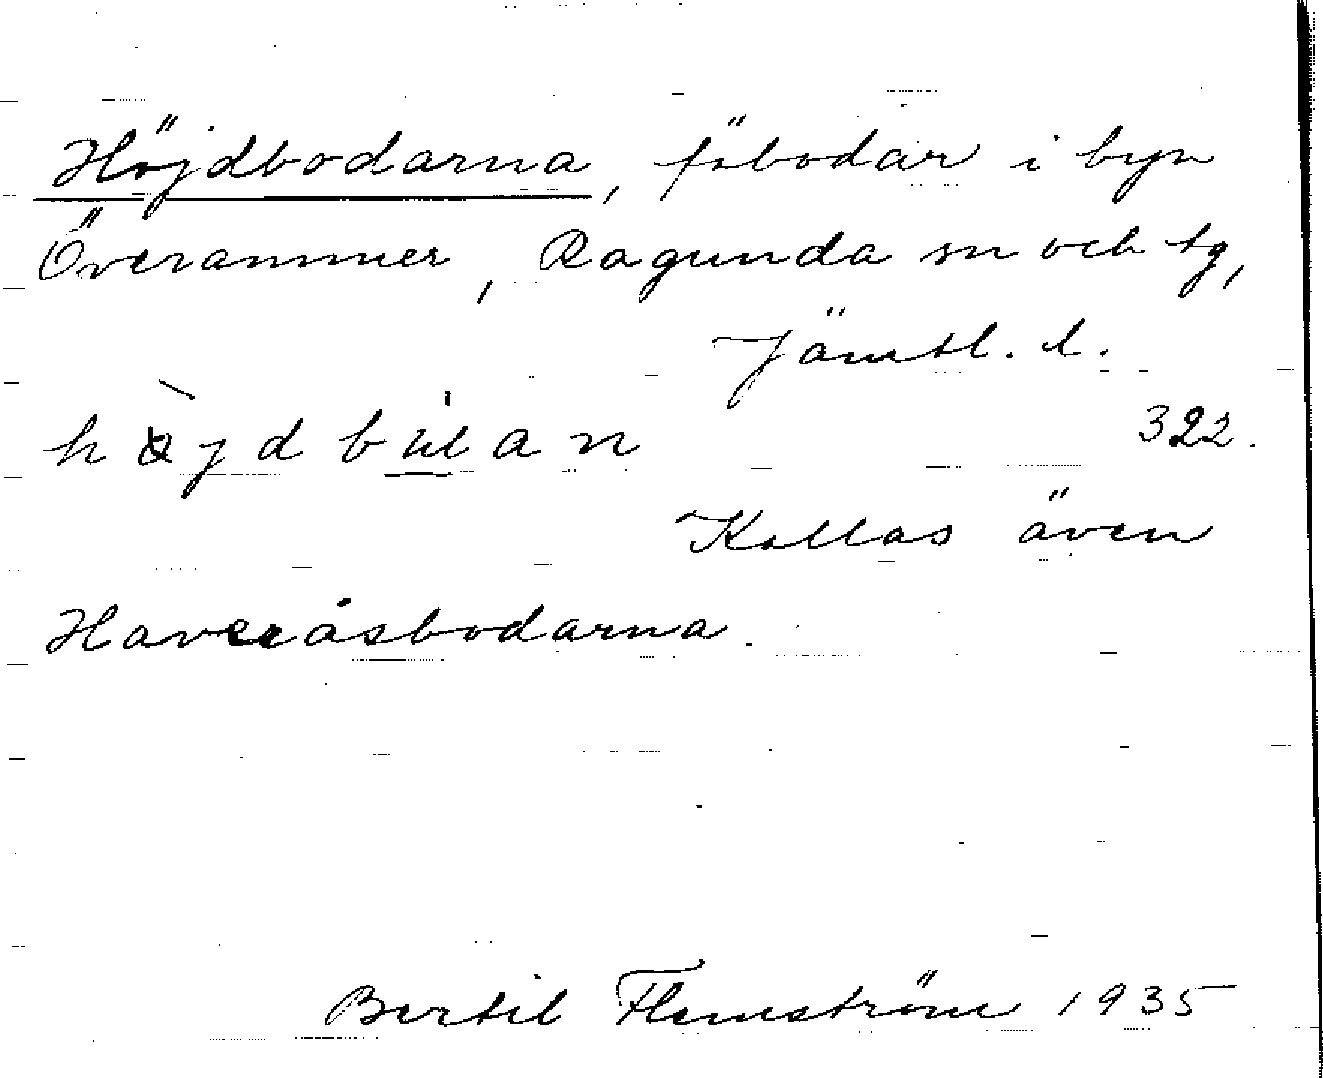 Höjdbodarna, fäbodar i byn
Överammer, Ragunda sn och tg,
Jämtl. l.
322.
Kallas även
Haveråsbodarna.
Bertil Flemström 1935